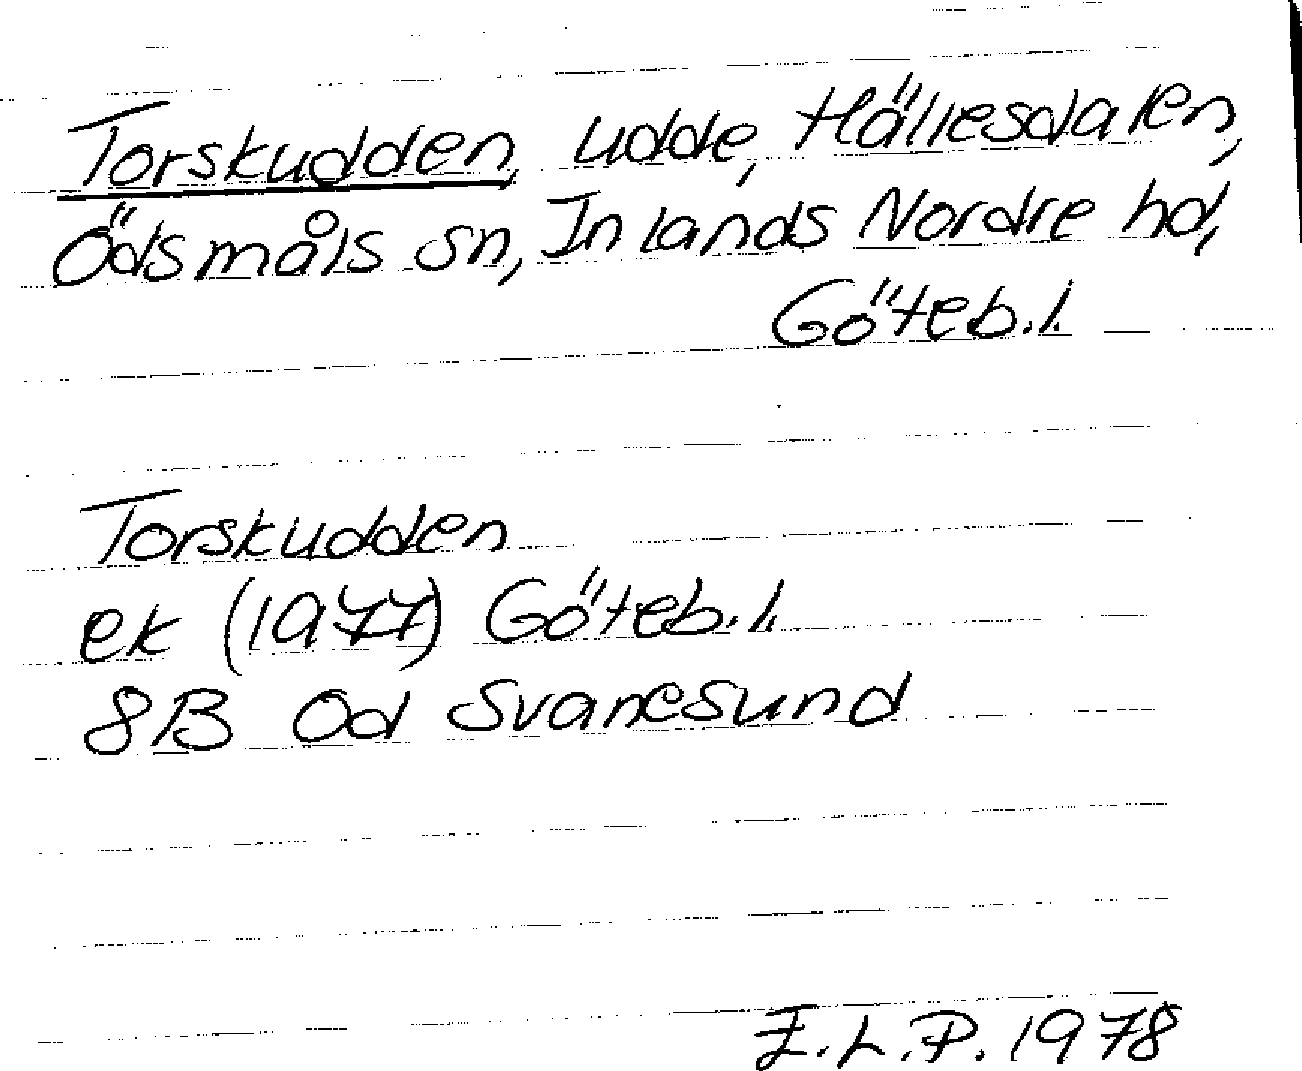 Torskudden, udde, Hällesdalen,
Ödsmåls sn, Inlands Nordre hd,
Göteb.l.
Torskudden
ek (1977) Göteb.l.
8B Od Svanesund
E.L.P. 1978